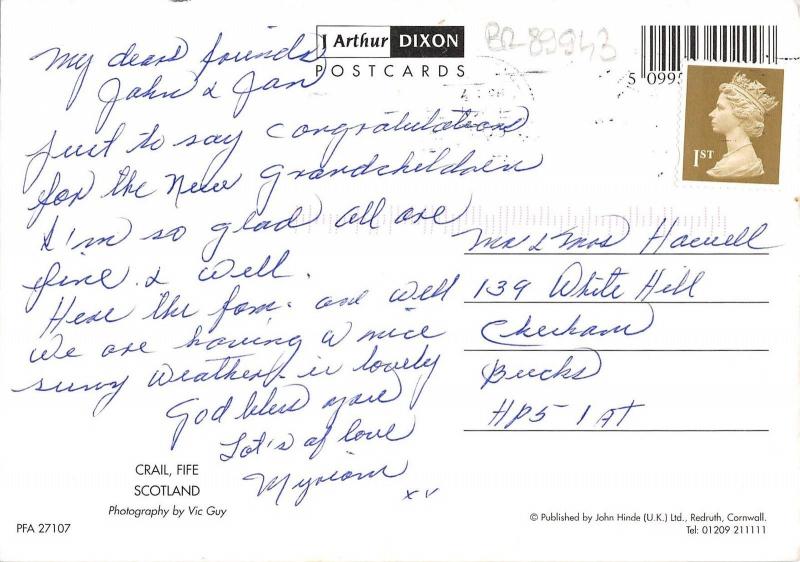 J Arthur DIXON
POSTCARDS
BR-89943
5 099
1ST
My dears friends
John & Jan
Just to say congratulations
for the New Grandchildren
& I'm so glad all are
fine & well.
Here the fam. are well
we are having a nice
sunny weather. is lovely
God bless you
Lot's of love
Myriam
xx
Mr & Mrs Howell
139 White Hill
Chesham
Bucks
HP5 1AT
CRAIL, FIFE
SCOTLAND
Photography by Vic Guy
PFA 27107
© Published by John Hinde (U.K.) Ltd., Redruth, Cornwall.
Tel: 01209 211111